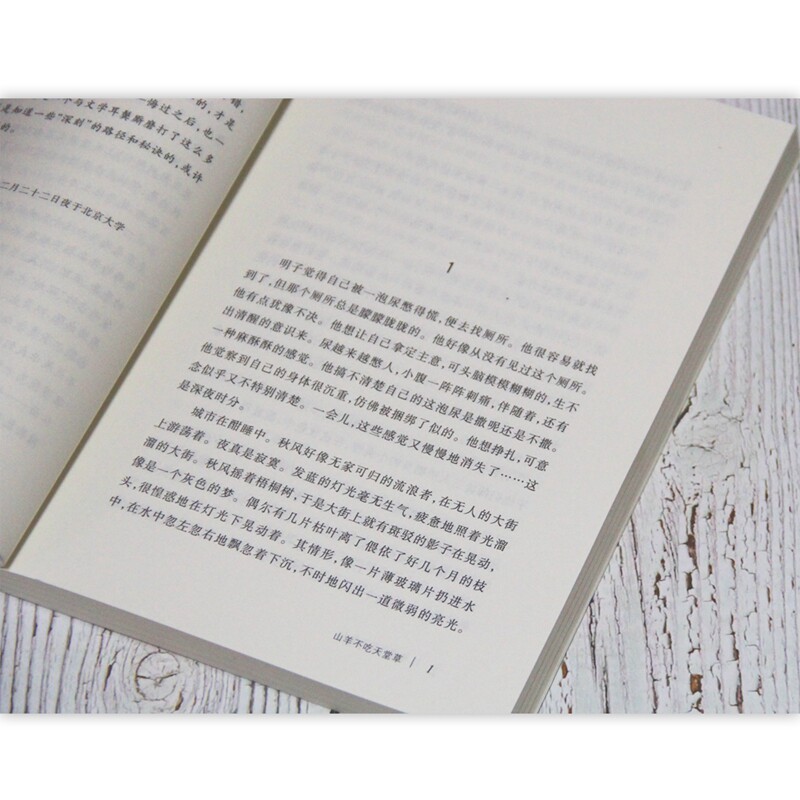 的，才是
悔过之后，也一
与文学耳鬓厮磨打了这么多
是知道一些“深刻”的路径和秘诀的，或许
的。
二月二十二日夜于北京大学
1
明子觉得自己被一泡尿憋得慌，便去找厕所。他很容易就找
到了，但那个厕所总是朦朦胧胧的。他好像从没有见过这个厕所。
他有点犹豫不决。他想让自己拿定主意，可头脑模模糊糊的，生不
出清醒的意识来。尿越来越憋人，小腹一阵阵刺痛，伴随着，还有
一种麻酥酥的感觉。他搞不清楚自己的这泡尿是撒呢还是不撒。
他觉察到自己的身体很沉重，仿佛被捆绑了似的。他想挣扎，可意
念似乎又不特别清楚。一会儿，这些感觉又慢慢地消失了……这
是深夜时分。
城市在酣睡中。秋风好像无家可归的流浪者，在无人的大街
上游荡着。夜真是寂寞。发蓝的灯光毫无生气，疲惫地照着光溜
溜的大街。秋风摇着梧桐树，于是大街上就有斑驳的影子在晃动，
像是一个灰色的梦。偶尔有几片枯叶离了偎依了好几个月的枝
头，很惶惑地在灯光下晃动着。其情形，像一片薄玻璃片扔进水
中，在水中忽左忽右地飘忽着下沉，不时地闪出一道微弱的亮光。
山羊不吃天堂草 | 1